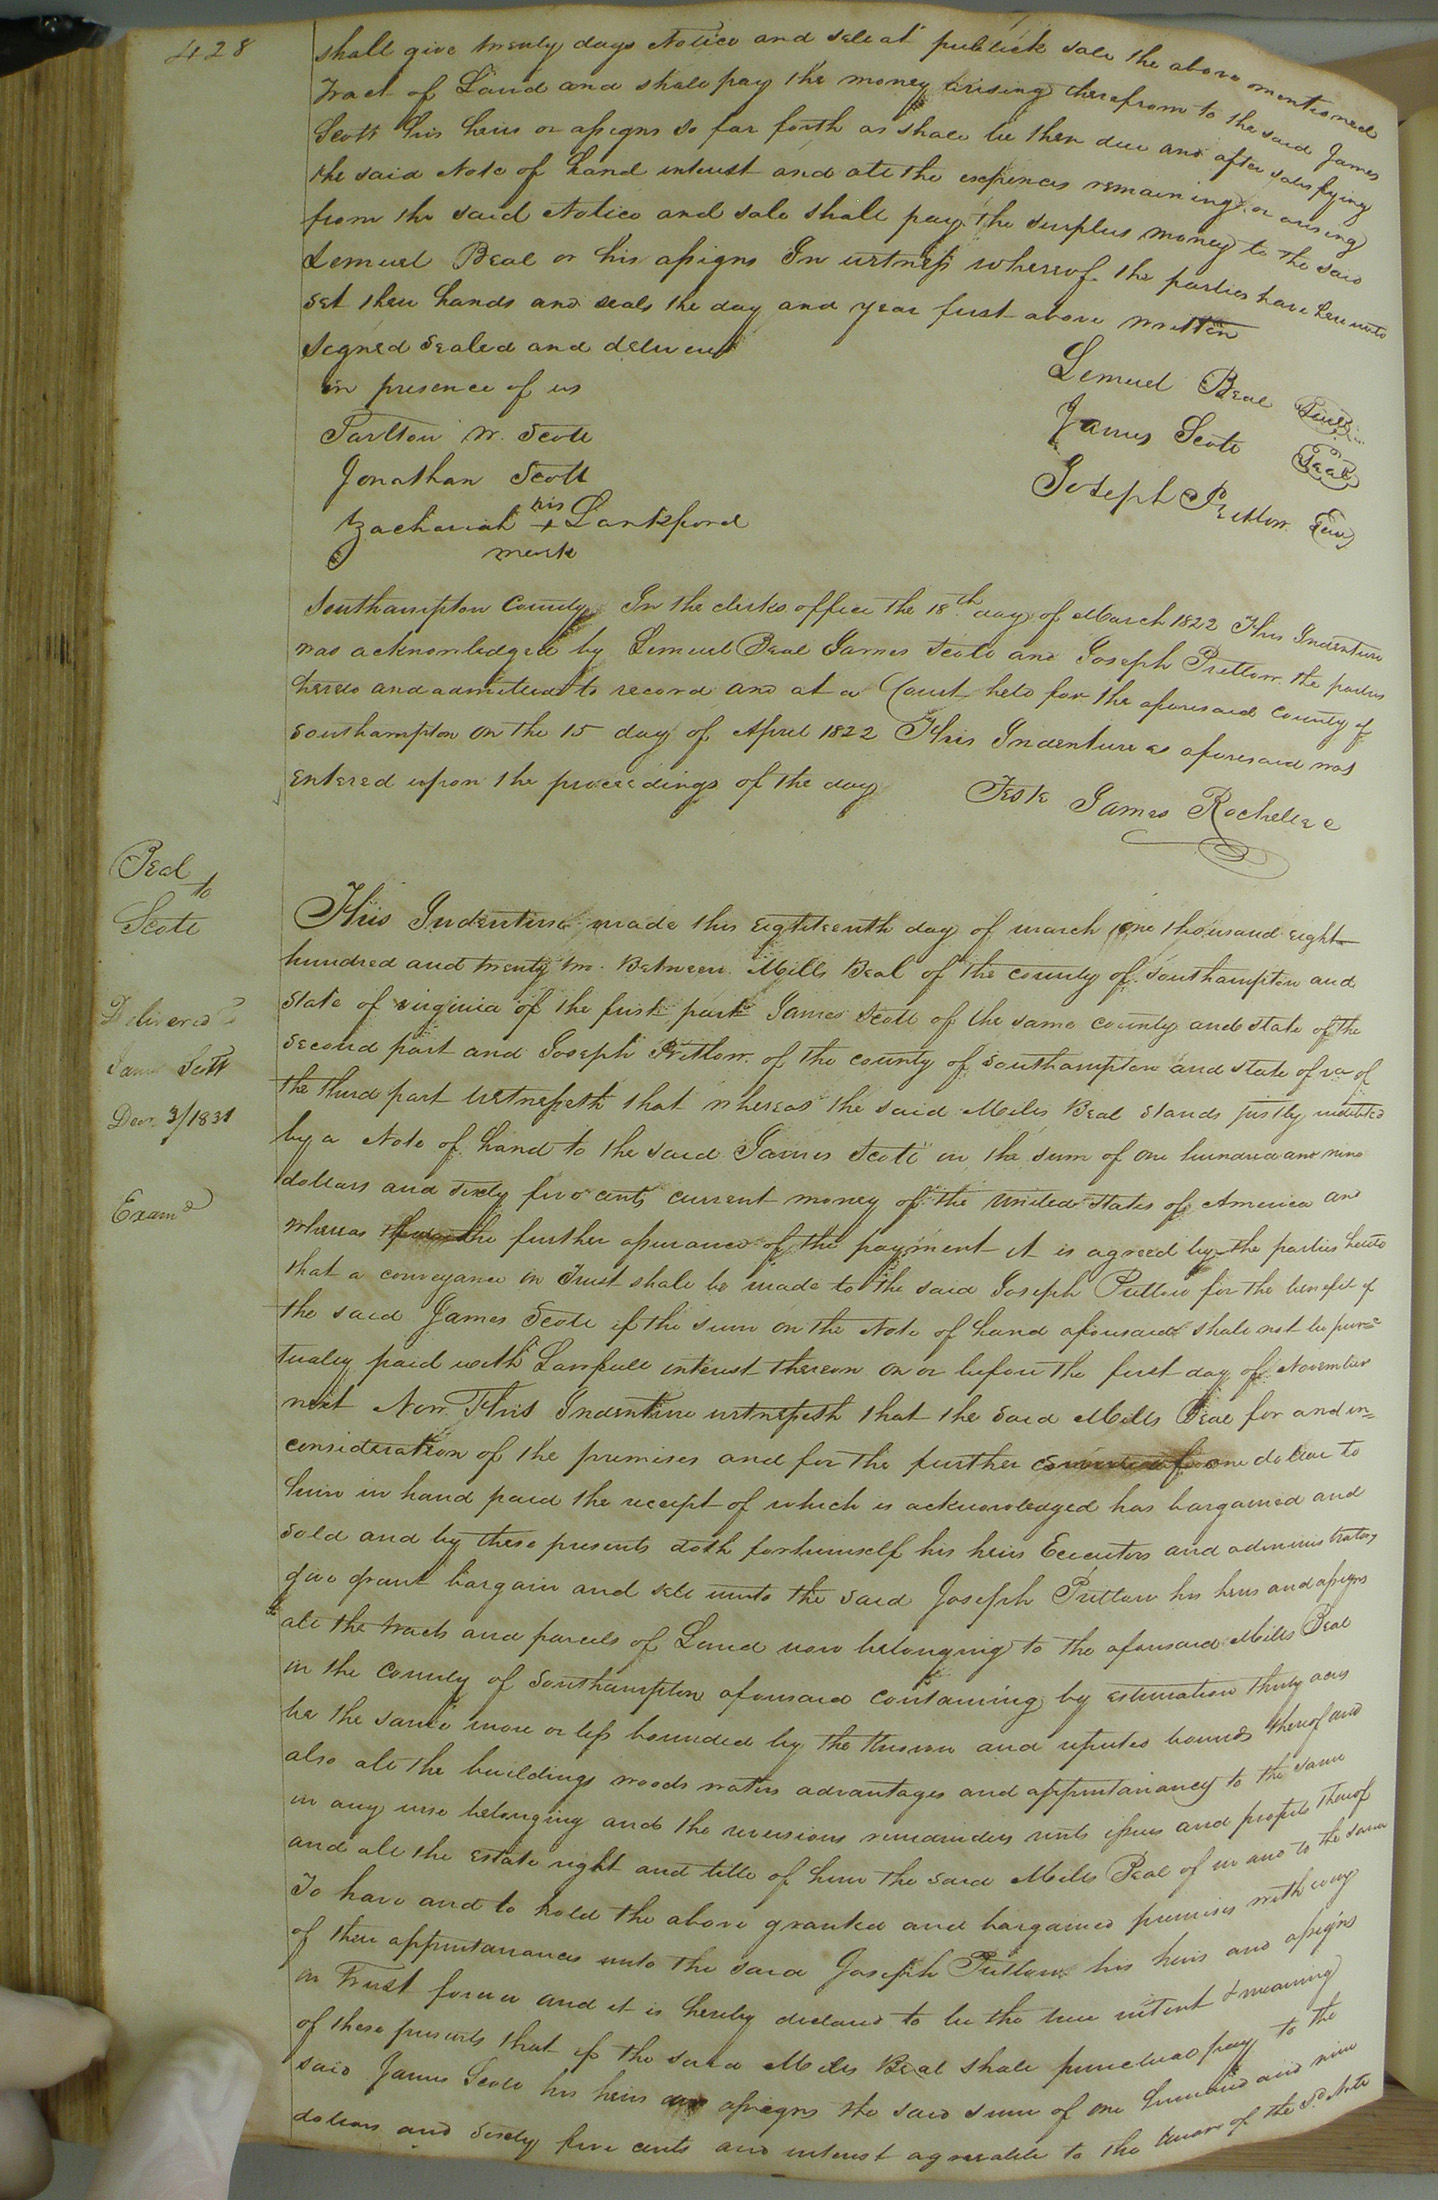 428
shall give twenty days Notice and sell at publick sale the above mentioned
Tract of Land and shall pay the money arising therefrom to the said James
Scott his heirs or assigns so far forth as shall be then due and after satisfying
the said Note of hand interest and all the expences remaining or arising
from the said Notice and sale shall pay the surplus money to the said
Lemuel Beal or his assigns In witness whereof the parties have hereunto
set their hands and seals the day and year first above written
Signed Sealed and delivered
in presence of us
Lemuel Beal Seal
Tarlton W. Scott
James Scott Seal
Jonathan Scott
Joseph Pretlow Seal
his
Zachariah + Lankford
mark
Southampton County In the clerks office the 18th day of March 1822 This Indenture
was acknowledged by Lemuel Beal James Scott and Joseph Pretlow the parties
hereto and admitted to record and at a Court held for the aforesaid county of
Southampton on the 15 day of April 1822 This Indenture as aforesaid was
entered upon the proceedings of the day
Teste James Rochelle c
Beal
to
Scott
Delivered
James Scott
Decr 3/1831
Examd
This Indenture made this eighteenth day of march one thousand eight
hundred and twenty two Between Mills Beal of the county of Southampton and
State of virginia of the first part James Scott of the same county and state of the
second part and Joseph Pretlow of the county of Southampton and state of va of
the third part witnesseth that whereas the said Mills Beal stands justly indebted
by a Note of hand to the said James Scott in the sum of one hundred and nine
dollars and sixty five cents current money of the United States of America and
whereas the further assurance of the payment it is agreed by the parties hereto
that a conveyance in Trust shall be made to the said Joseph Pretlow for the benefit of
the said James Scott if the sum on the Note of hand aforesaid shall not be punc=
tually paid with Lawfull interest thereon on or before the first day of November
next Now This Indenture witnesseth that the said Mills Beal for and in=
consideration of the premises and for the further one dollar to
him in hand paid the receipt of which is acknowledged has bargained and
sold and by these presents doth for himself his heirs Executors and administrators
give grant bargain and sell unto the said Joseph Pretlow his heirs and assigns
all the tracts and parcels of Land now belonging to the aforesaid Mills Beal
in the County of Southampton aforesaid containing by estimation thirty acres
be the same more or less bounded by the known and reputed bounds thereof and
also all the buildings woods waters advantages and appurtanancy to the same
in any wise belonging and the reversions remainders rents issues and profits thereof
and all the estate right and title of him the said Mills Beal of in and to the same
To have and to hold the above granted and bargained premises with every
of their appurtanances unto the said Joseph Pretlow his heirs and assigns
in Trust forever and it is hereby declared to be the true intent & meaning
of these presents that if the said Mills Beal shall punctual pay to the
said James Scott his heirs assigns the said sum of one hundred and nine
dollars and Sixty five cents and interest agreeable to the tenor of the Sd Note